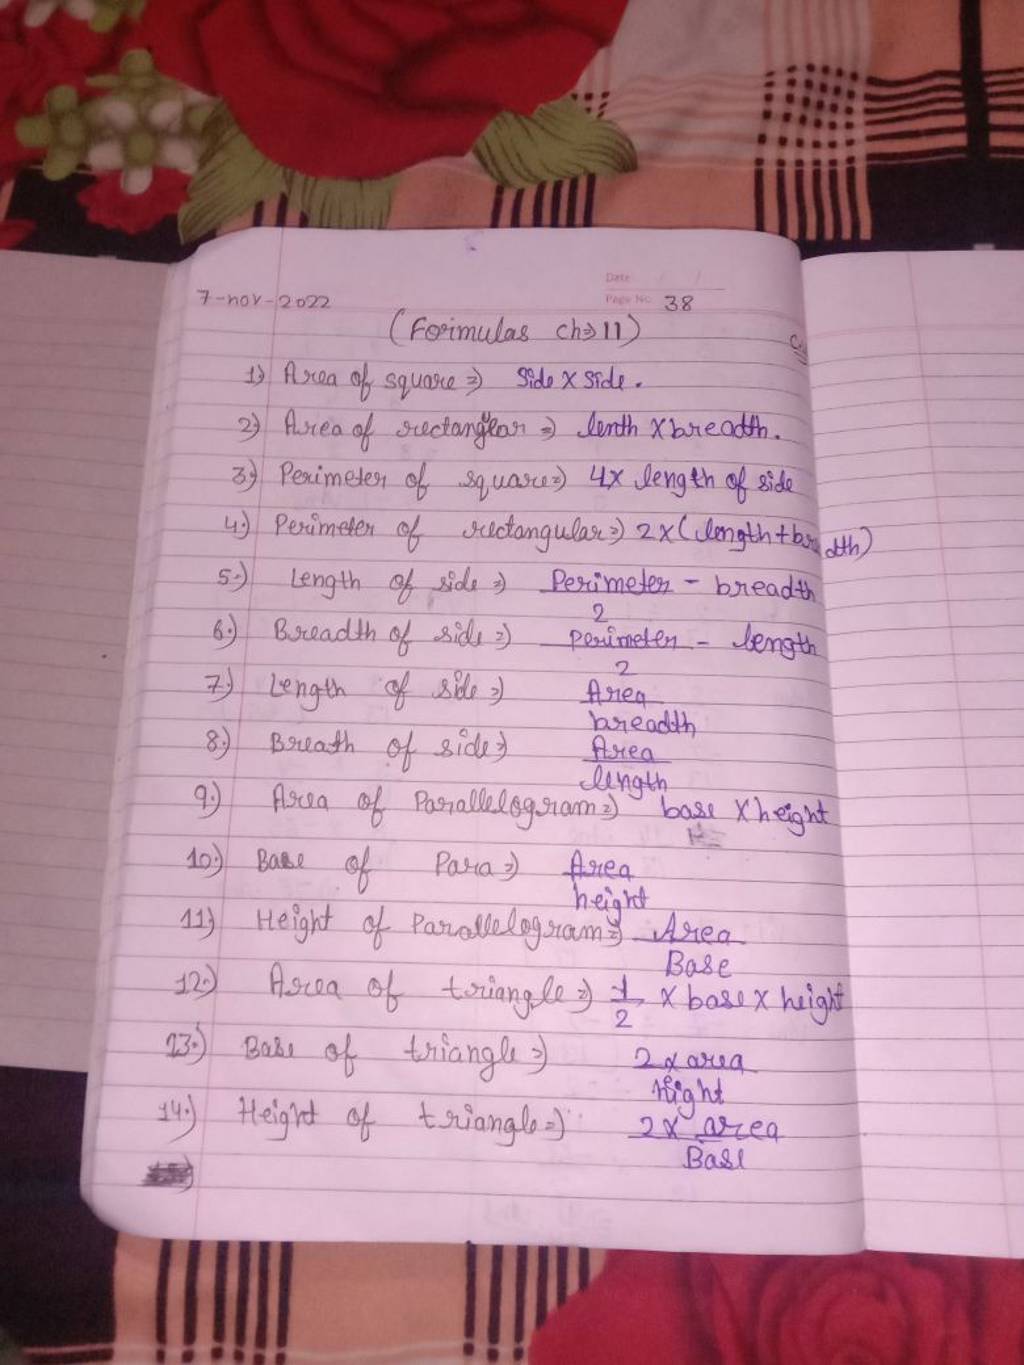 Date / /
7-nov-2022 Page No. 38
(Formulas ch⇒11)
1) Area of square ⇒ Side x Side.
2) Area of rectangular ⇒ lenth x breadth.
3) Perimeter of square ⇒ 4x length of side
4.) Perimeter of rectangular ⇒ 2x(length+breadth)
5.) Length of side ⇒ Perimeter - breadth
2
6.) Breadth of side ⇒ Perimeter - length
2
7.) Length of side ⇒ Area
breadth
8.) Breath of side ⇒ Area
length
9.) Area of Parallelogram ⇒ base x height
10.) Base of Para ⇒ Area
height
11.) Height of Parallelogram ⇒ Area
Base
12.) Area of triangle ⇒ 1 x base x height
2
13.) Base of triangle ⇒ 2 x area
hight
14.) Height of triangle ⇒ 2 x area
Base